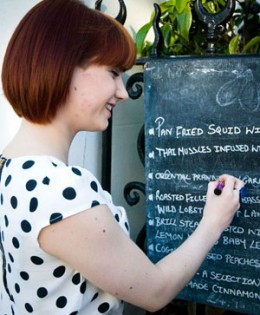 PAN FRIED SQUID WI
THAI MUSSLES INFUSED WI
ORIENTAL PRAWN
GAR
ROASTED FILLE
WILD LOBST
BASS
LAM
BRILL STEA
LEMON
BABY LE
COQ
PEACHES
A SELECTION
MADE CINNAMON